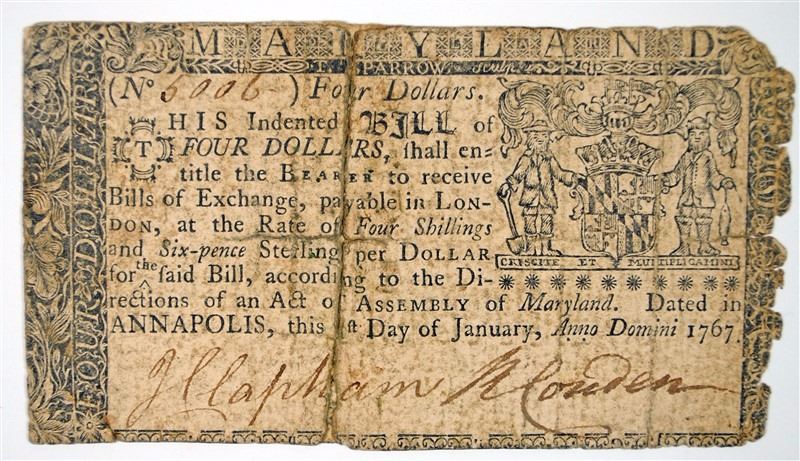 FOUR DOLLARS
MARYLAND
T. SPARROW Sculp.
(No 5006) Four Dollars.
THIS Indented BILL of
FOUR DOLLARS, ſhall en=
title the BEARER to receive
Bills of Exchange, payable in LON-
DON, at the Rate of Four Shillings
and Six-pence Sterling per DOLLAR
for the ſaid Bill, according to the Di-
rections of an Act of ASSEMBLY of Maryland. Dated in
ANNAPOLIS, this 1ſt Day of January, Anno Domini 1767.
CRESCITE ET MULTIPLICAMINI
J Clapham R Couden